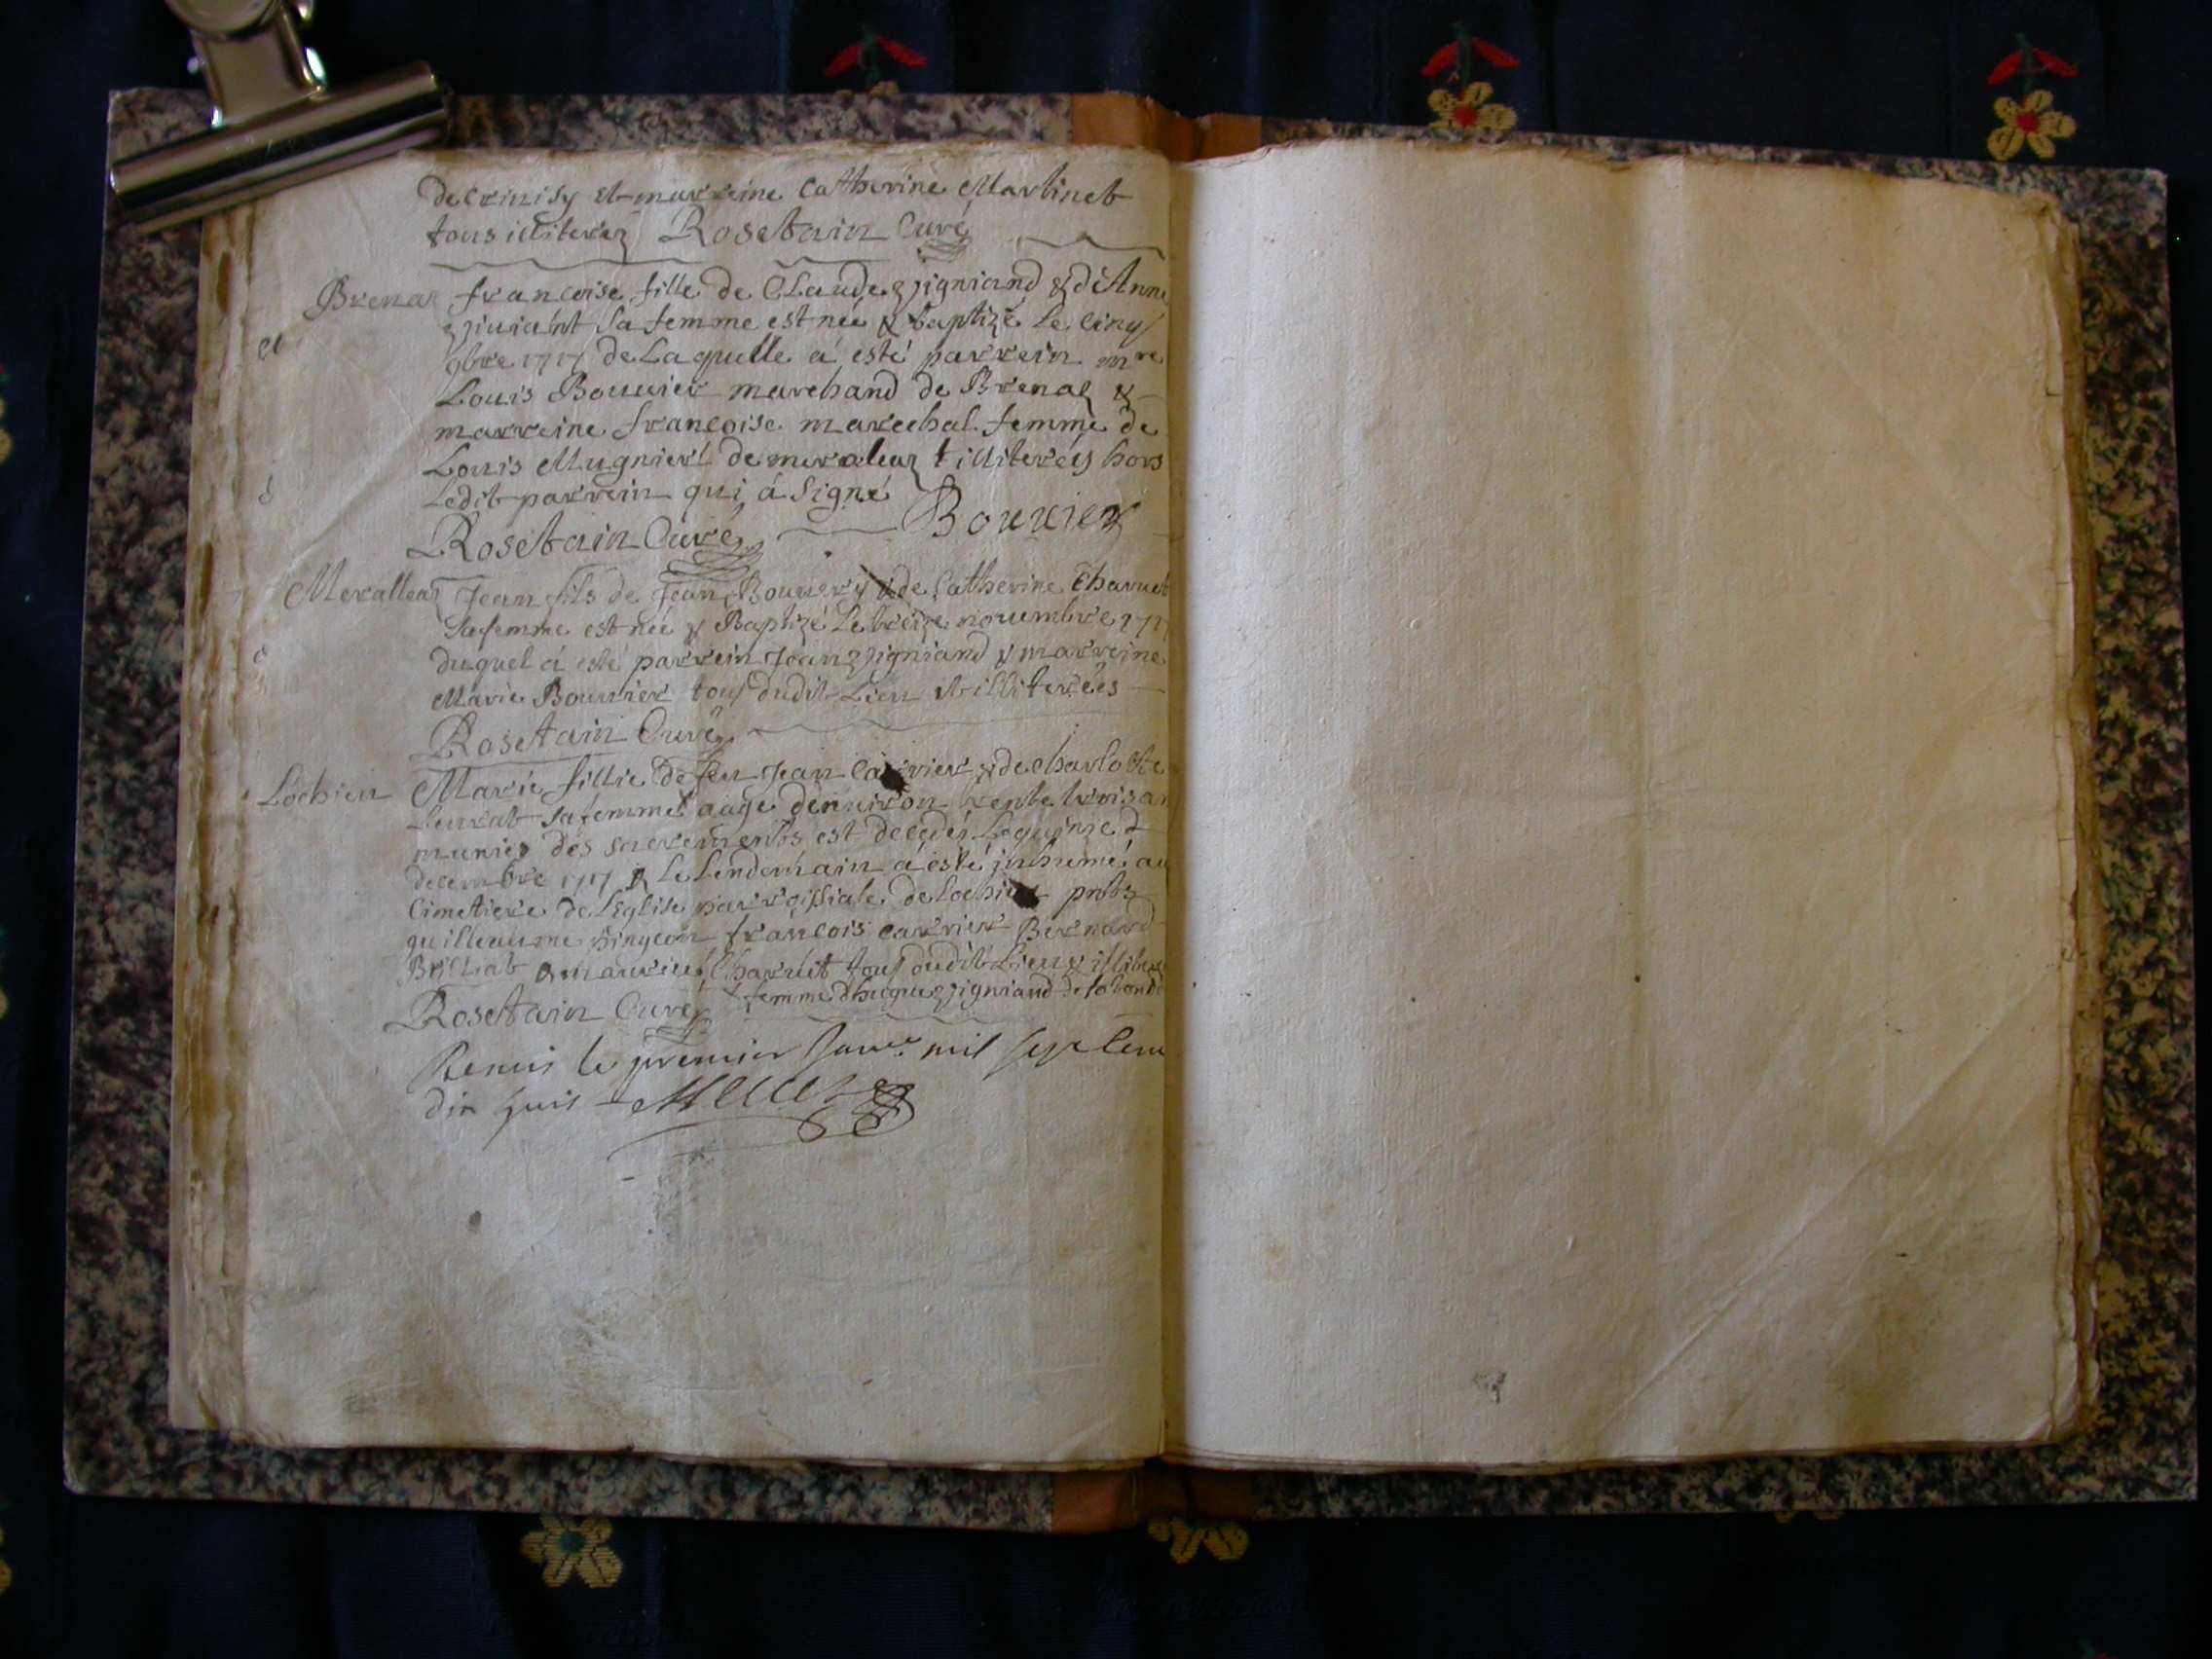 de crinisy et marreine Catherine Martinet
tous illiterez Rosetain Curé
Brenaz francoise fille de Claude & d'Anne
sa femme est née & baptizé le cinq
9bre 1717 de Laquelle á esté parrein mre
Louis Bouuier marchand de Brenaz &
marreine francoise marechal femme de
Louis Mugnier de meraleaz illiterées hors
Ledit parrein qui á signé
Rosetain Curé Bouuier
Meralleaz Jean fils de Jean Bouuery & de Catherine Charuet
sa femme est née & Baptizé Le treize nouembre 1717
duquel á esté parrein Jean & marreine
Marie Bouuier tous dudit Lieu et illiterées
Rosetain Curé
Lochieu Marie fillie de feu Jean Carrier & de charlotte
sa femme aagé denuiron trente trois an
munie des sacrements est decedé Le quinze d
decembre 1717 & Le Lendemain á esté inhumé au
Cimetiere de LEglise parroissiale de Lochieu pnts
guilleaume francois carrier Bernard
Brillat Charuet tous dudit Lieu & illiterez
Rosetain Curé femme dhugue de
Remis le premier Janer mil sept cent
dix huit